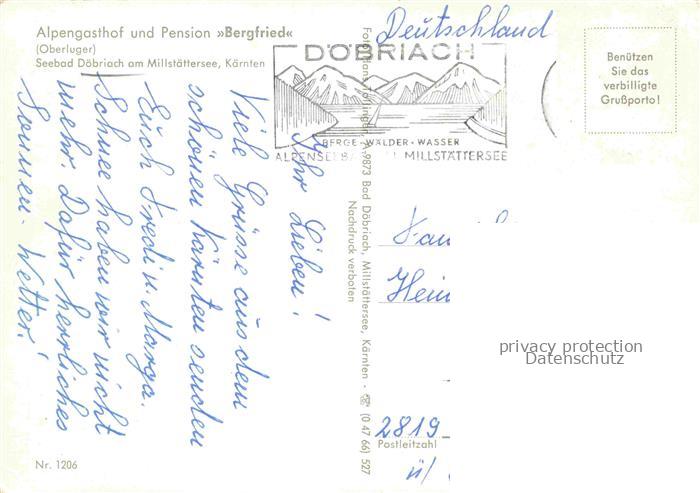 Alpengasthof und Pension »Bergfried«
(Oberluger)
Seebad Döbriach am Millstättersee, Kärnten
Deutschland
DÖBRIACH
BERGE - WÄLDER - WASSER
MILLSTÄTTERSEE
Benützen
Sie das
verbilligte
Grußporto!
Ihr Lieben!
Viele Grüsse aus dem
schönen Kärnten senden
Euch Fredi u. Marga.
Schnee haben wir nicht
mehr. Dafür herrliches
Sonnen-Wetter!
9873 Bad Döbriach, Millstättersee, Kärnten - ☏ (0 47 66) 527
Nachdruck verboten
Fam
Hein
privacy protection
Datenschutz
2819
Postleitzahl
ü/
Nr. 1206